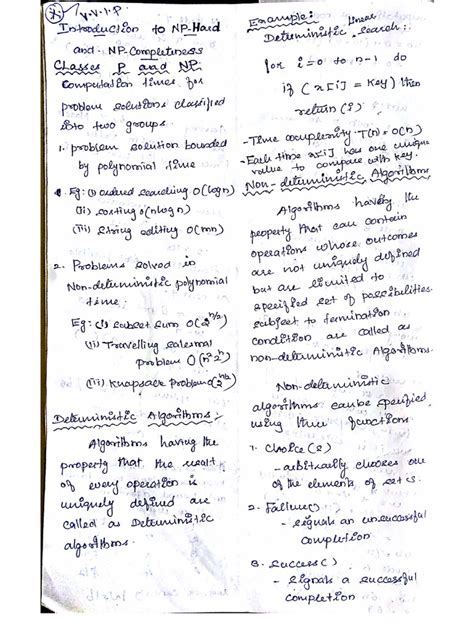 V.V.I.P.
Introduction to NP-Hard
and NP-Completeness
Classes P and NP
Computation times for
problem solutions classified
into two groups.
1. problem solution bounded
by polynomial time
Eg: (i) ordered searching O(logn)
(ii) sorting O(nlogn)
(iii) string editing O(mn)
2. Problems solved in
Non-deterministic polynomial
time.
Eg: (i) subset sum O(2^n/2)
(ii) Travelling salesmal
problem O(n²2ⁿ)
(iii) knapsack problem O(2^n/2)
Deterministic Algorithms:
Algorithms having the
property that the result
of every operation is
uniquely defined are
called as Deterministic
algorithms.
Example:
Deterministic linear search:
for i=0 to n-1 do
if (x[i] = key) then
return (i)
-Time complexity T(n) = O(n)
-Each time x[i] has one unique
value to compare with key.
Non-deterministic Algorithms
Algorithms having the
property that can contain
operations whose outcomes
are not uniquely defined
but are limited to
specified set of possibilities.
subject to termination
condition are called as
non-deterministic Algorithms.
Non-deterministic
algorithms can be specified
using three functions
1. Choice(s)
- arbitrally chooses one
of the elements of set s.
2. Failure()
- signals an unsuccessful
completion
3. success()
- signals a successful
completion